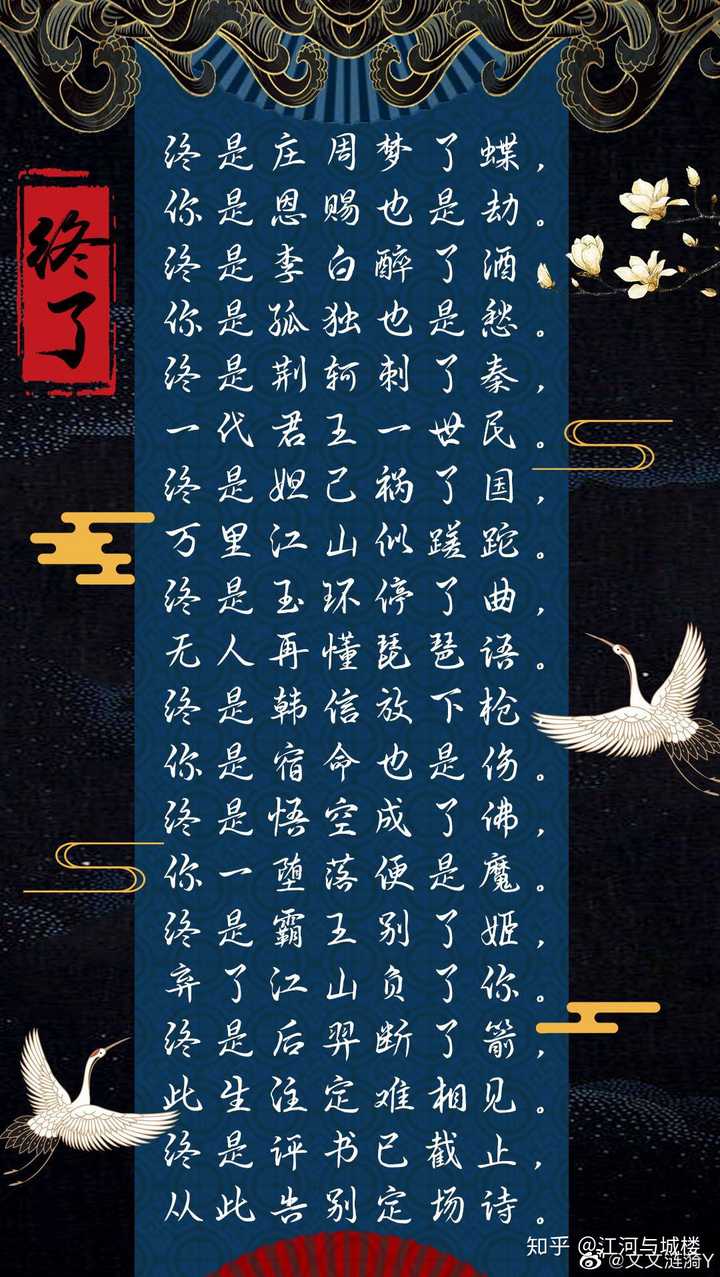 终了
终是庄周梦了蝶，
你是恩赐也是劫。
终是李白醉了酒
你是孤独也是愁。
终是荆轲刺了秦，
一代君王一世民。
终是妲己祸了国，
万里江山似蹉跎。
终是玉环停了曲，
无人再懂琵琶语。
终是韩信放下枪
你是宿命也是伤。
终是悟空成了佛，
你一堕落便是魔。
终是霸王别了姬，
弃了江山负了你。
终是后羿断了箭，
此生注定难相见。
终是评书已截止，
从此告别定场诗。
知乎 @江河与城楼
@文文涟漪Y